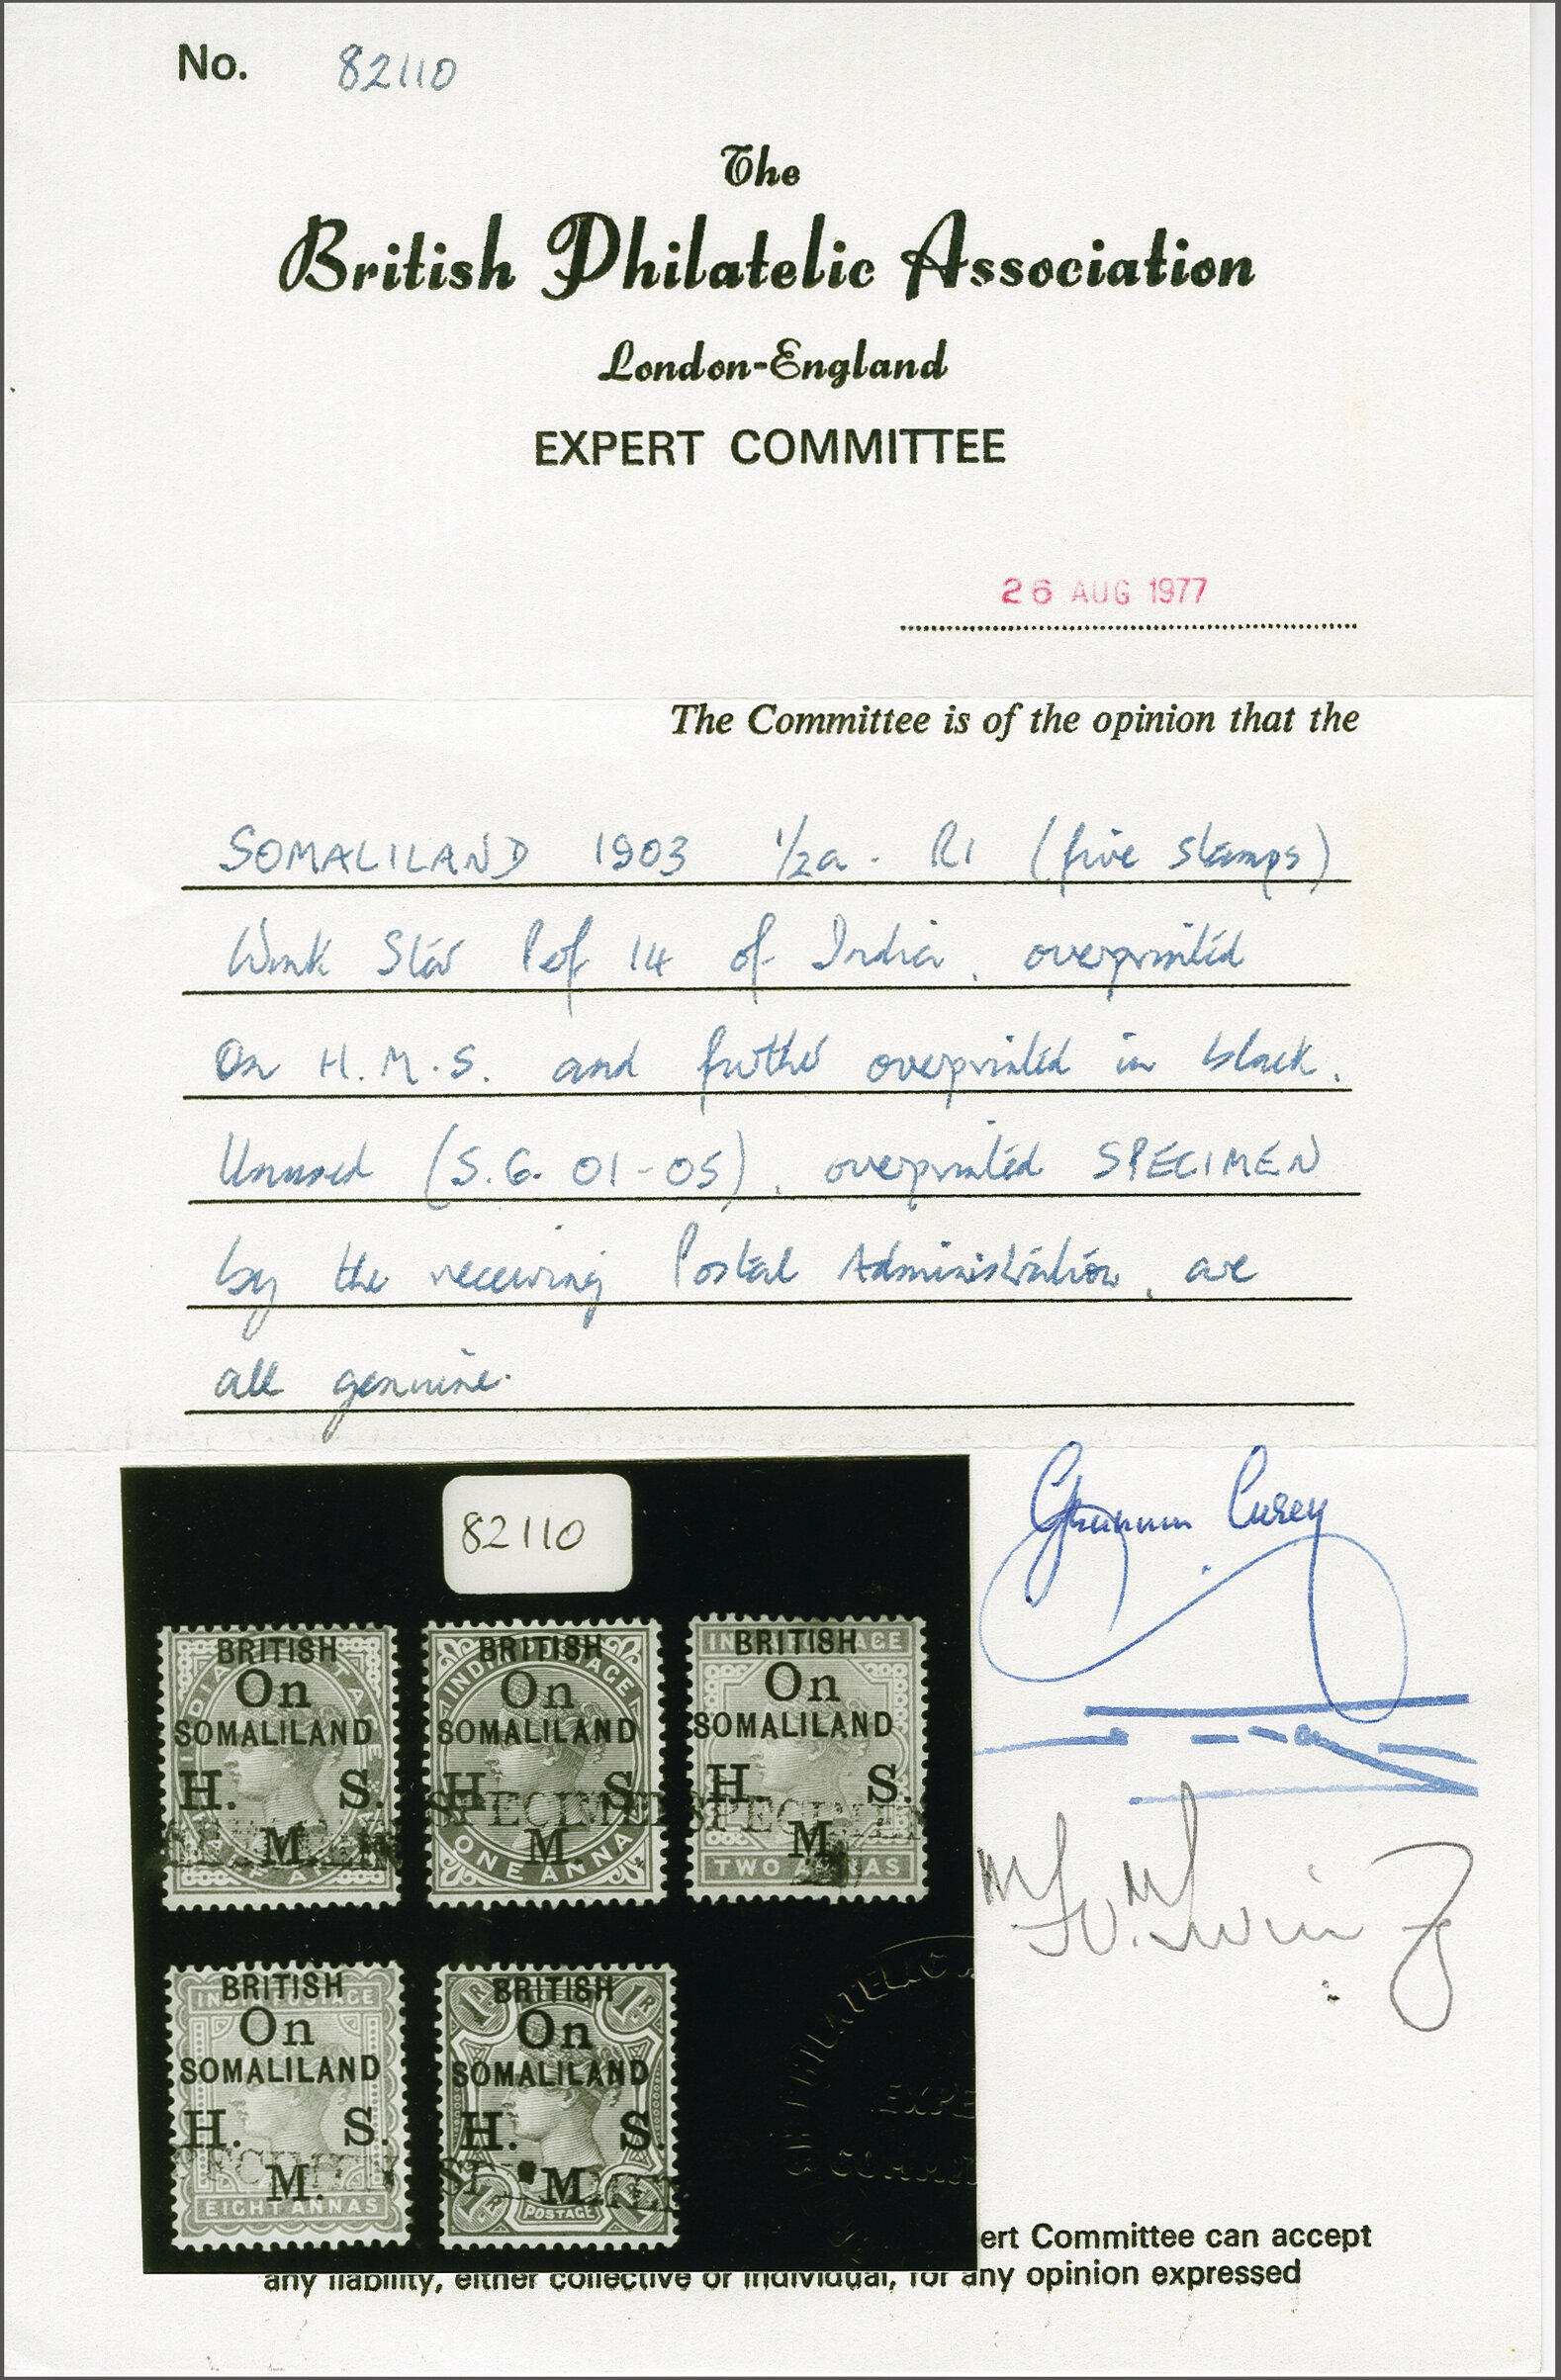 No. 82110
The
British Philatelic Association
London-England
EXPERT COMMITTEE
26 AUG 1977
The Committee is of the opinion that the
SOMALILAND 1903 ½a - R1 (five stamps)
Wmk Star Perf 14 of India, overprinted
On H.M.S. and further overprinted in black.
Unused (S.G. 01-05), overprinted SPECIMEN
by the receiving Postal Administration, are
all genuine.
82110
BRITISH
On
SOMALILAND
H. S.
M.
BRITISH
INDIA POSTAGE
On
SOMALILAND
H. S.
SPECIMEN
M
ONE ANNA
BRITISH
On
SOMALILAND
H. S.
SPECIMEN
M.
TWO ANNAS
BRITISH
INDIA POSTAGE
On
SOMALILAND
H. S.
M.
EIGHT ANNAS
BRITISH
1R 1R
On
SOMALILAND
H. S.
M.
1R POSTAGE 1R
PHILATELIC
EXPE
COMMIT
ert Committee can accept
any liability, either collective or individual, for any opinion expressed